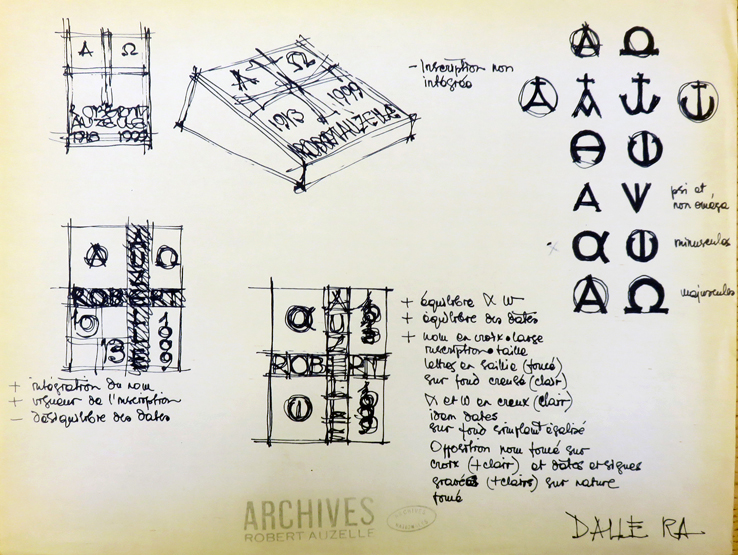 A Ω
ROBERT
AUZELLE
A Ω
1913 1999
ROBERT AUZELLE
- Inscription non
intégrée
A Ω
psi et
non oméga
minuscules
majuscules
A Ω
AUZELLE
ROBERT
1999
+ intégration du nom
+ vigueur de l'inscription
- déséquilibre des dates
α
AUZELLE
ROBERT
+ équilibre α ω
+ équilibre des dates
+ nom en croix + large
inscription + taille
lettres en saillie (foncé)
sur fond creusé (clair)
α et ω en creux (clair)
idem dates
sur fond simplement égalisé
Opposition nom foncé sur
croix (+ clair) et dates et signes
gravés (+ clairs) sur nature
foncé
ARCHIVES
ROBERT AUZELLE
DALLE RA